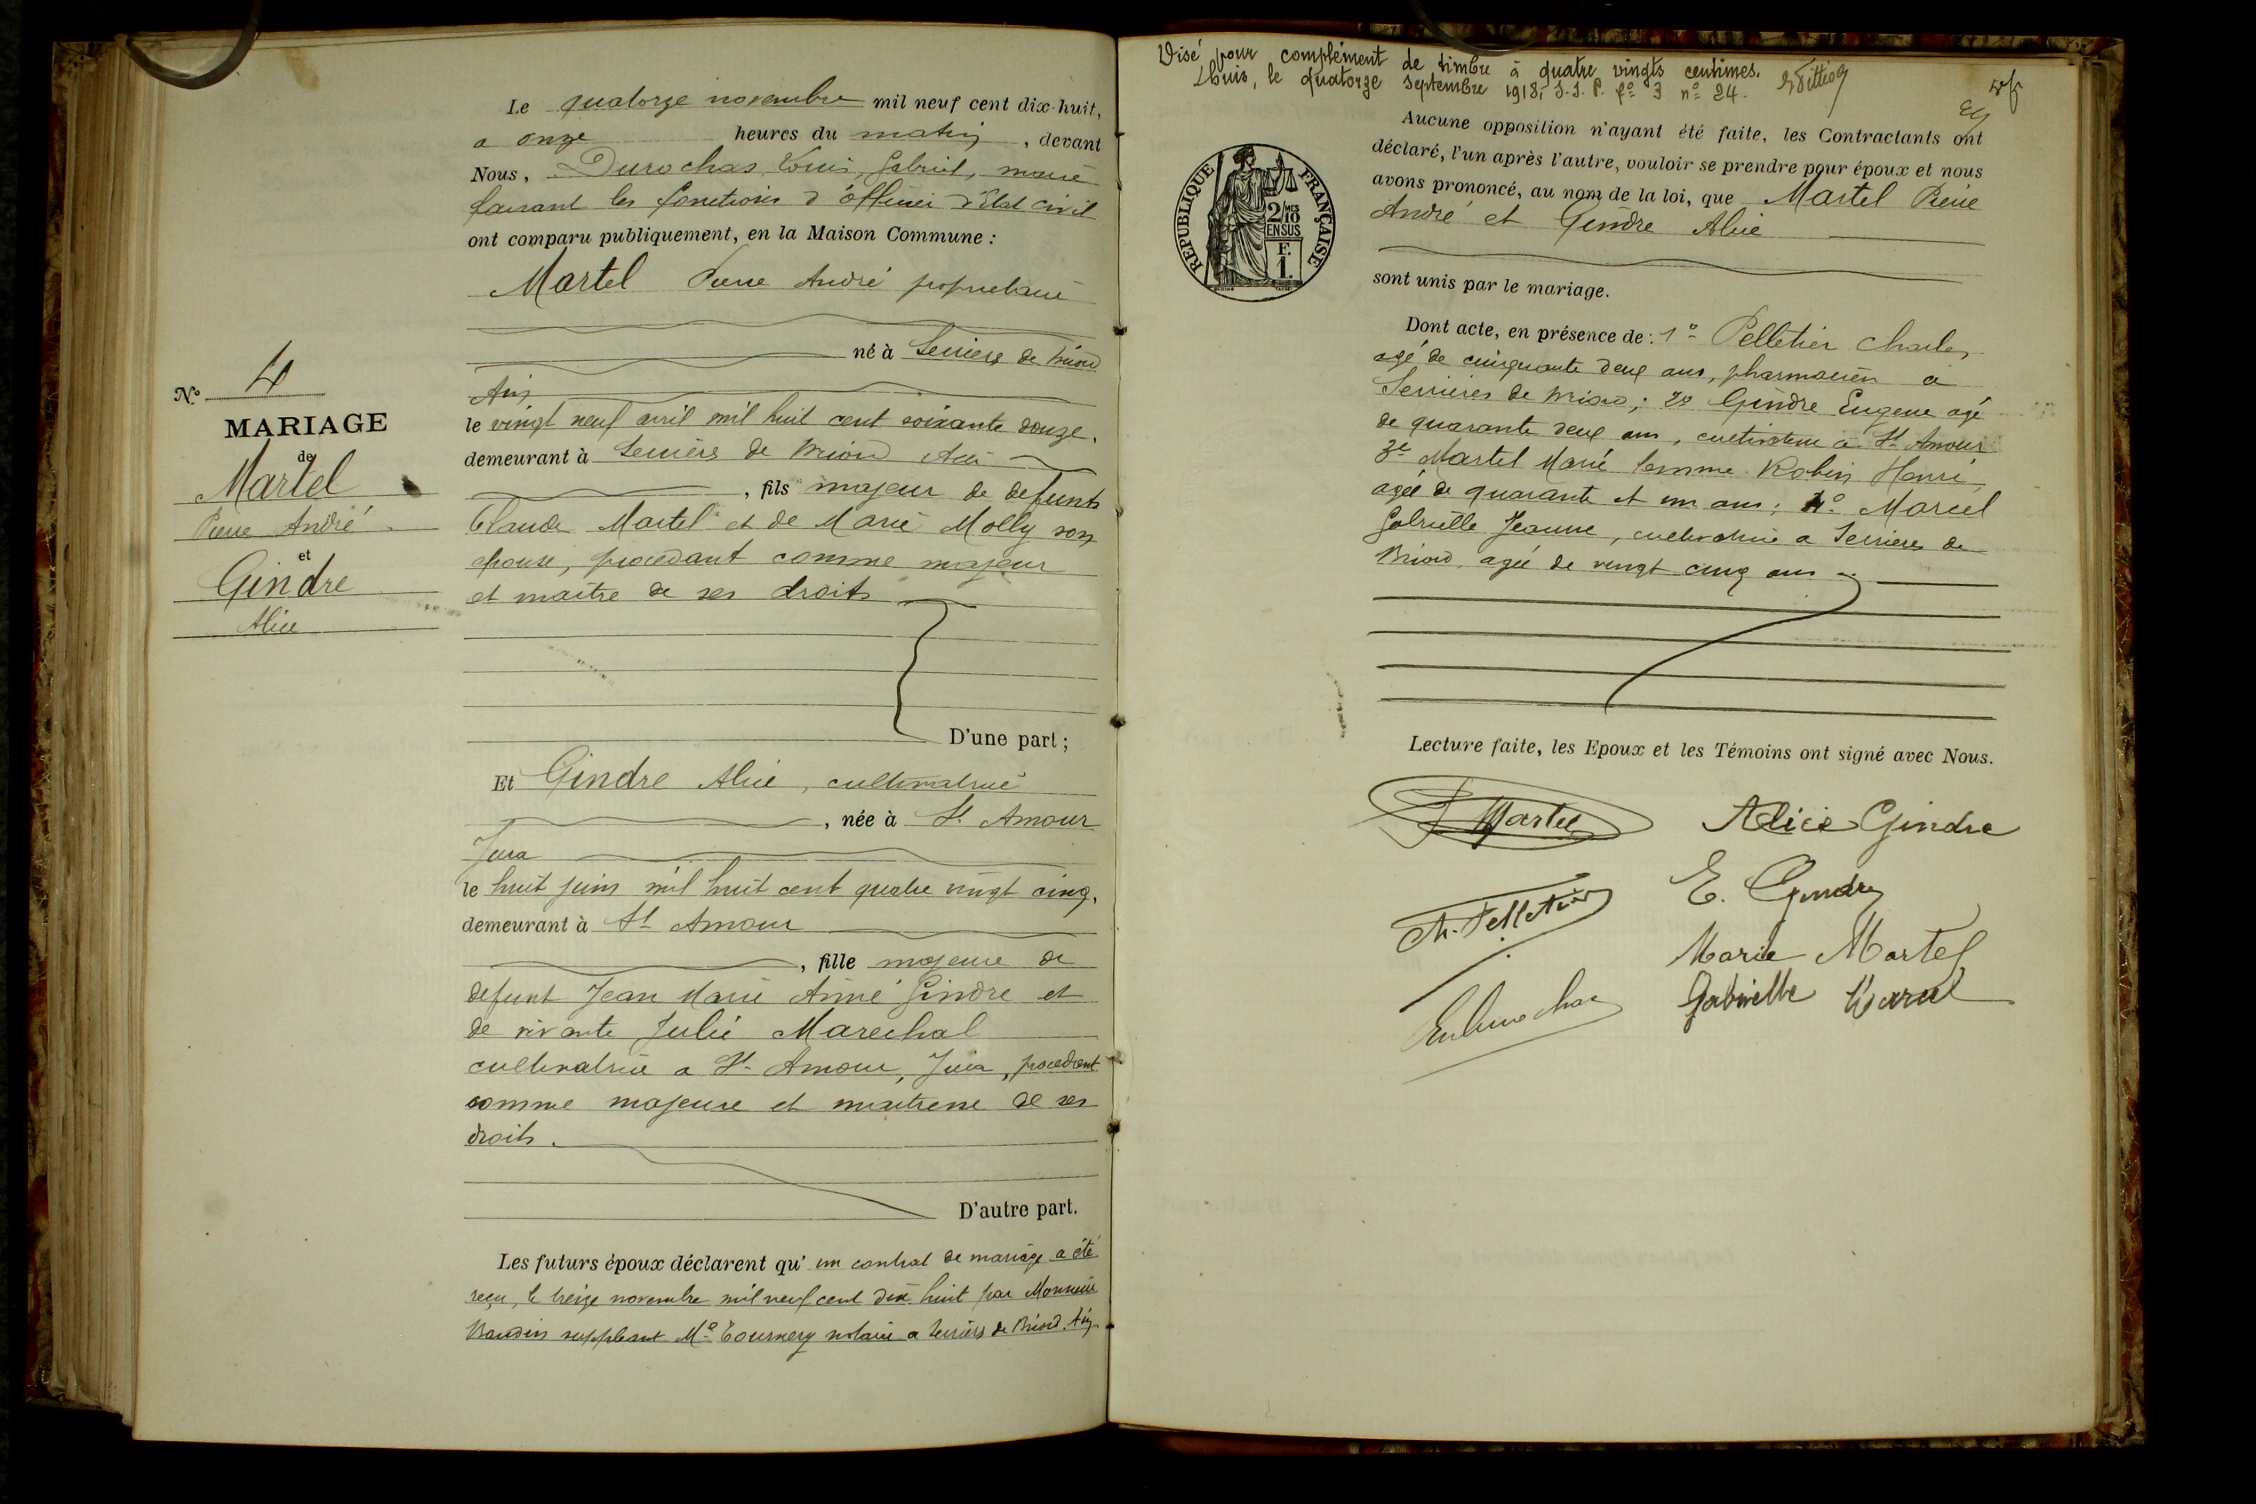 Le quatorze novembre mil neuf cent dix-huit,
a onze heures du matin, devant
Nous, Durochas, Louis, Gabriel, maire
faisant les fonctions d'officier d'Etat civil
ont comparu publiquement, en la Maison Commune :
Martel Pierre André propriétaire
né à Serrières de Briord
Ain
le vingt neuf avril mil huit cent soixante douze,
demeurant à Serrières de Briord Ain
, fils majeur de défunts
Claude Martel et de Marie Molly son
épouse, procédant comme majeur
et maître de ses droits
D'une part ;
N° 4
MARIAGE
de
Martel
Pierre André
et
Gindre
Alice
Et Gindre Alice, cultivatrice
, née à St Amour
Jura
le huit juin mil huit cent quatre vingt cinq,
demeurant à St Amour
, fille majeure de
defunt Jean Marie Aimé Gindre et
de vivante Julie Marechal
cultivatrice a St Amour, Jura, procedant
comme majeure et maitresse de ses
droits.
D'autre part.
Les futurs époux déclarent qu'un contrat de mariage a été
reçu, le treize novembre mil neuf cent dix huit par Monsieur
Baudin suppléant Me Tournery notaire a Serrières de Briord. Ain
Visé pour complément de timbre à quatre vingts centimes.
Lhuis, le quatorze Septembre 1918, S.S.P. f° 3 n° 24.
REPUBLIQUE FRANÇAISE
2/10 MES
EN SUS
F.
1.
Aucune opposition n'ayant été faite, les Contractants ont
déclaré, l'un après l'autre, vouloir se prendre pour époux et nous
avons prononcé, au nom de la loi, que Martel Pierre
André et Gindre Alice
sont unis par le mariage.
Dont acte, en présence de : 1° Pelletier Charles
agé de cinquante deux ans, pharmacien a
Serrières de Briord; 2° Gindre Eugene agé
de quarante deux ans, cultivateur à St Amour
3° Martel Marie femme Robin Henri,
agée de quarante et un ans; 4° Marcel
Gabrielle Jeanne, cultivatrice a Serrières de
Briord, agée de vingt cinq ans
Lecture faite, les Epoux et les Témoins ont signé avec Nous.
Martel Alice Gindre
E. Gindre
Ch. Pelletier
Marie Martel
Gabrielle Marcel